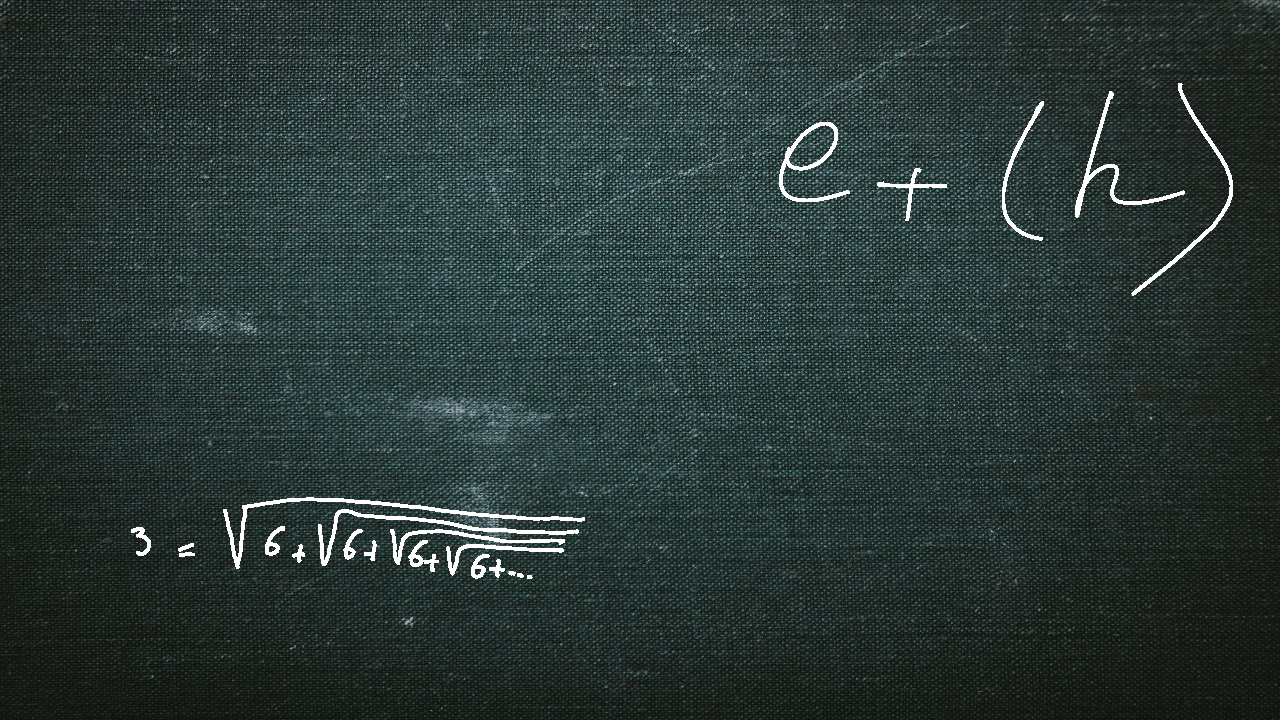 e + (h)
3 = √6+√6+√6+√6+...